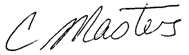 C Masters